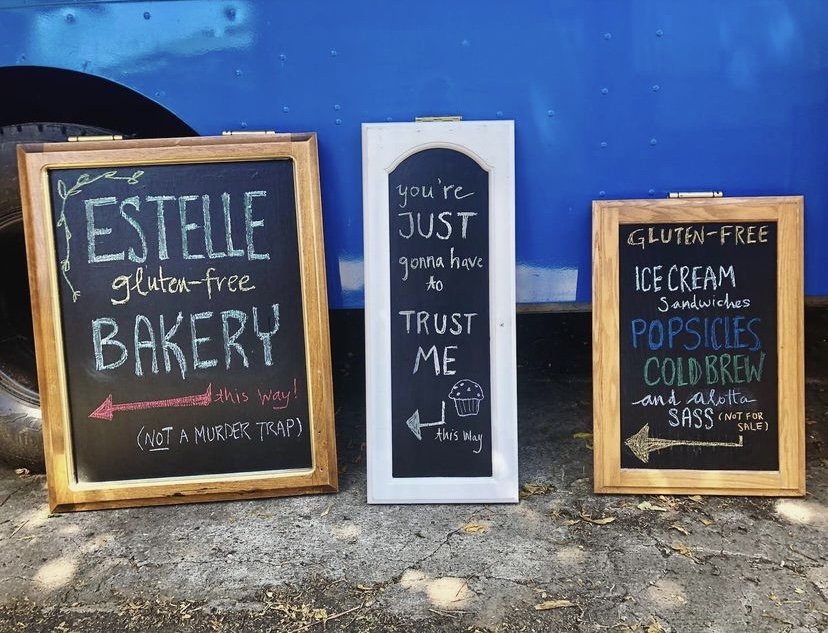 ESTELLE
gluten-free
BAKERY
this way!
(NOT A MURDER TRAP)
you're
JUST
gonna have
to
TRUST
ME
this way
GLUTEN-FREE
ICE CREAM
Sandwiches
POPSICLES
COLD BREW
and alotta
SASS (NOT FOR
SALE)